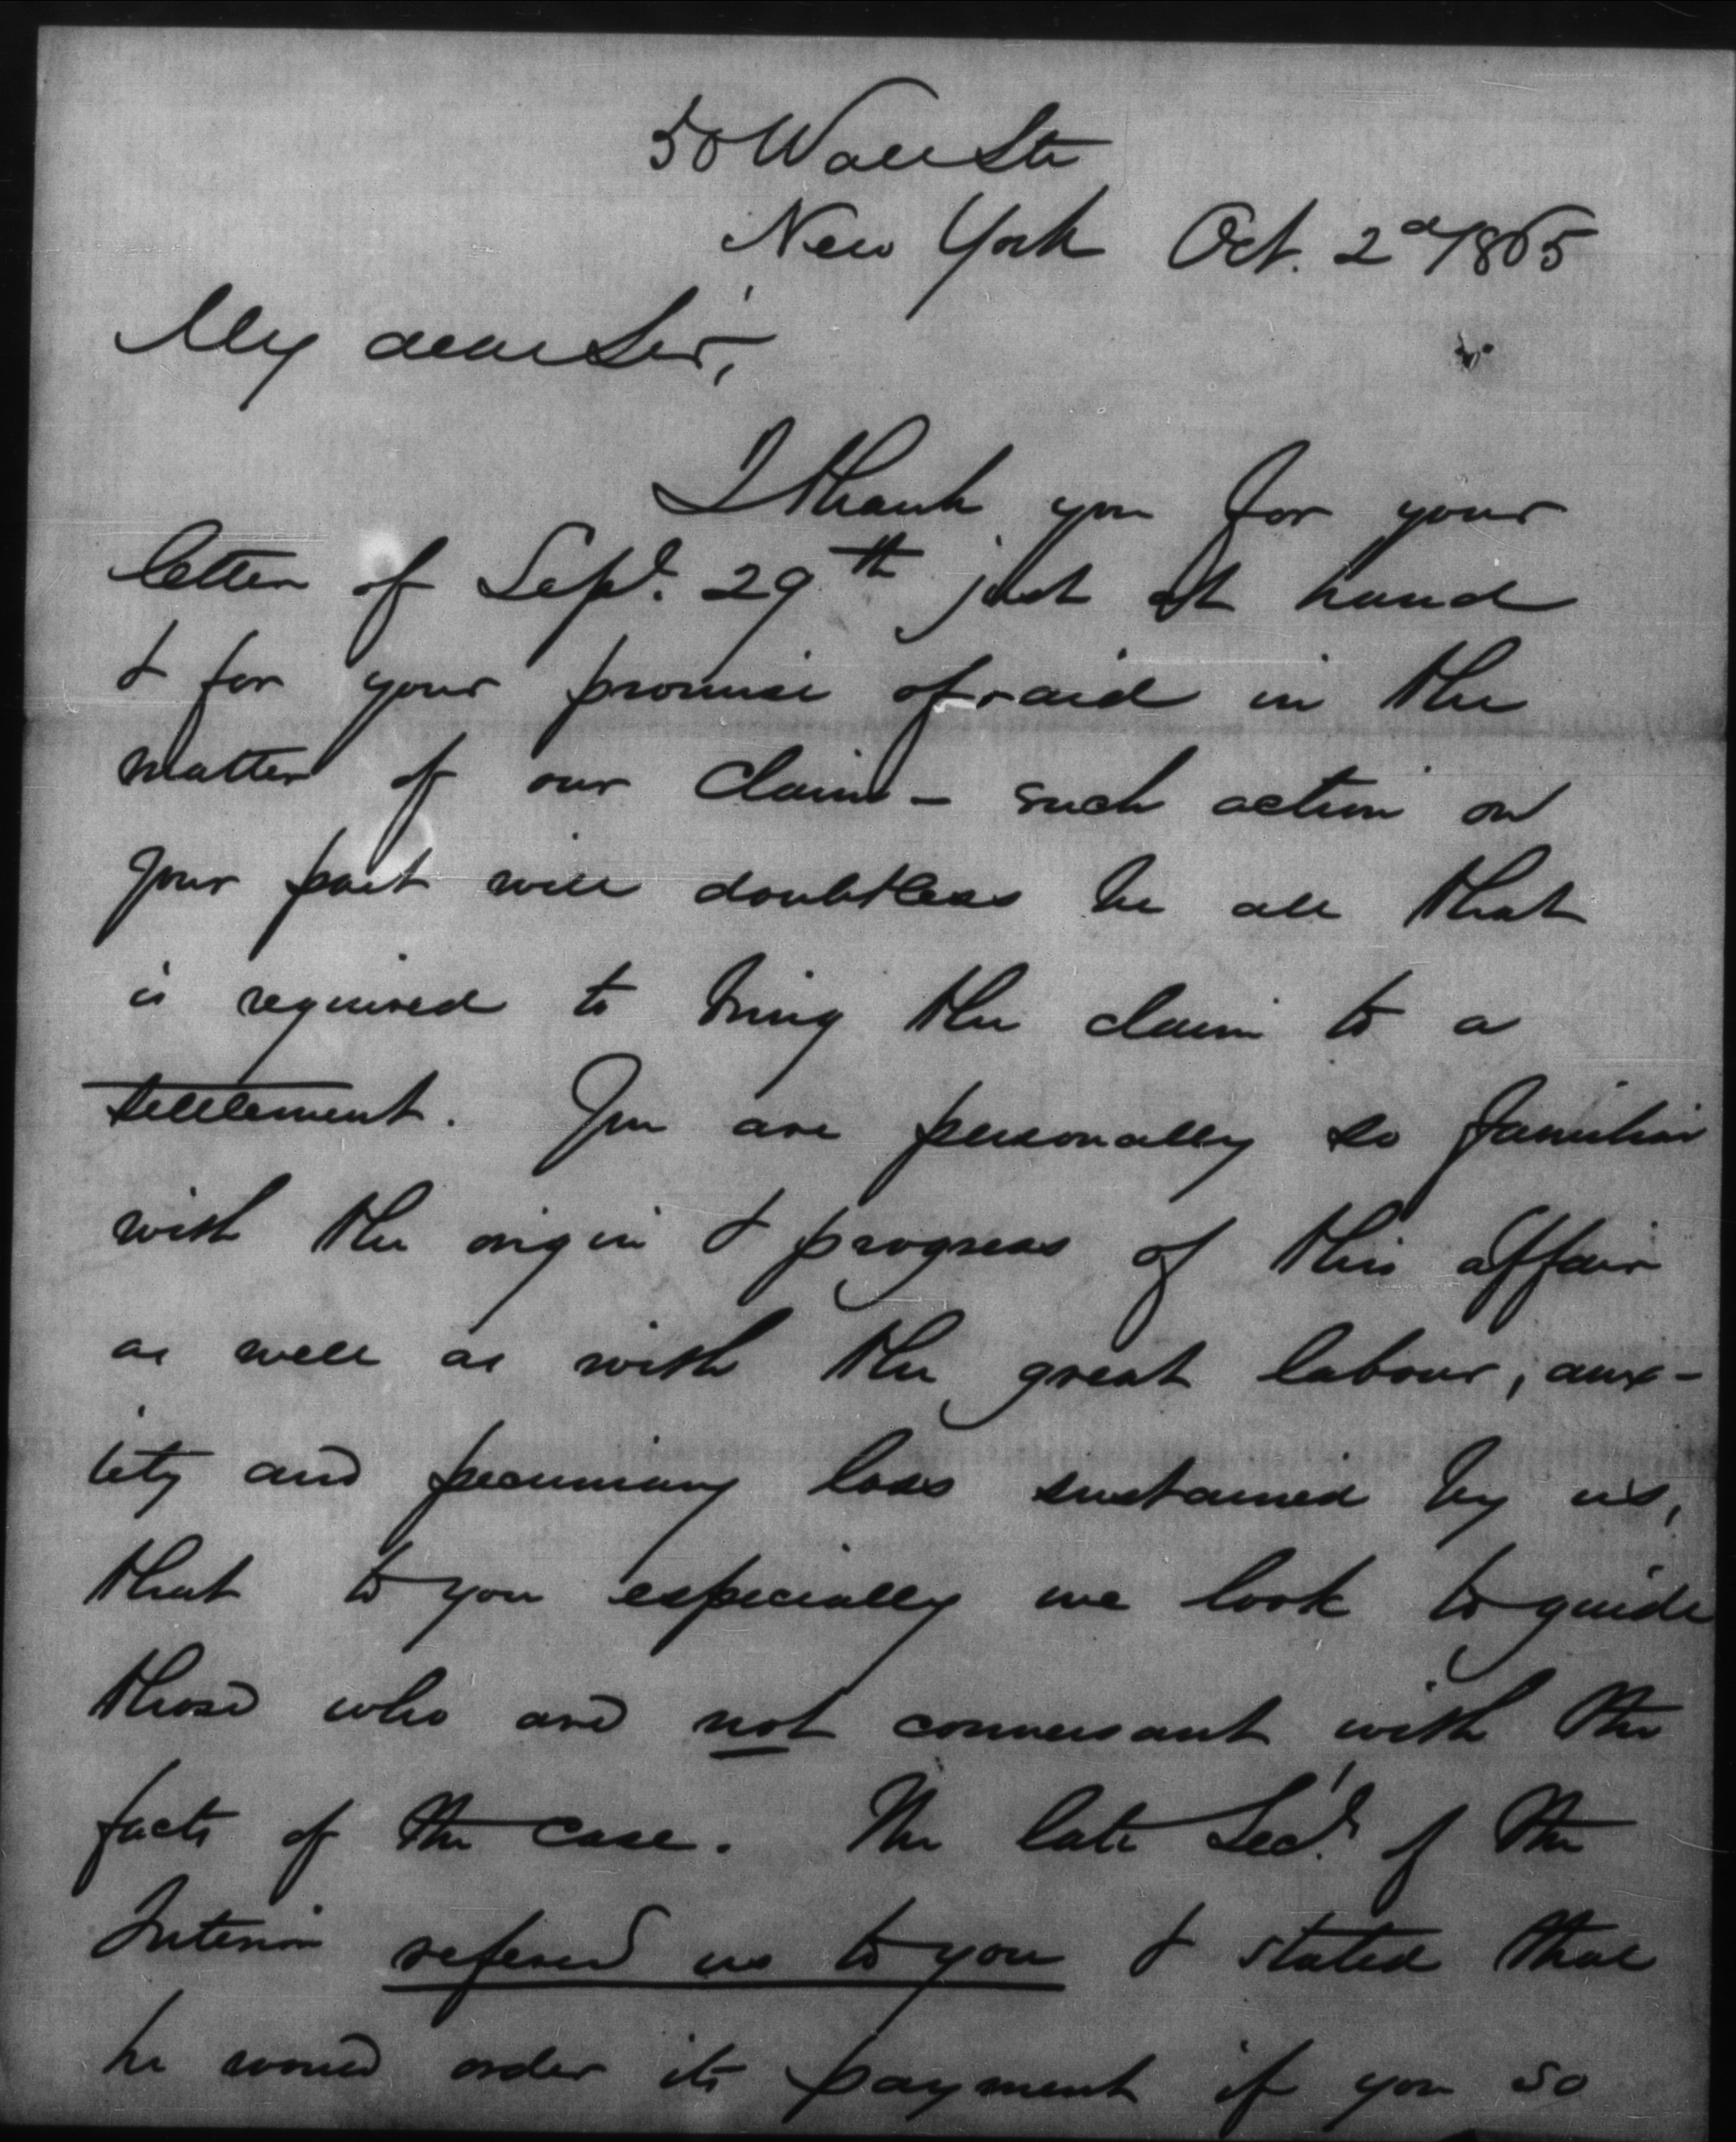 50 Wall St
New York Oct. 2d/1865
My dear Sir,
I thank you for your
letter of Sept. 29th just at hand
& for your promise of aid in the
matter of our claim - such action on
your part will doubtless be all that
is required to bring the claim to a
settlement. You are personally so familiar
with the origin & progress of this affair
as well as with the great labour, anx-
iety and pecuniary loss sustained by us,
that to you especially we look to guide
those who are not conversant with the
facts of the case. The late Secy. of the
Interior refered us to you & stated that
he would order its payment if you so